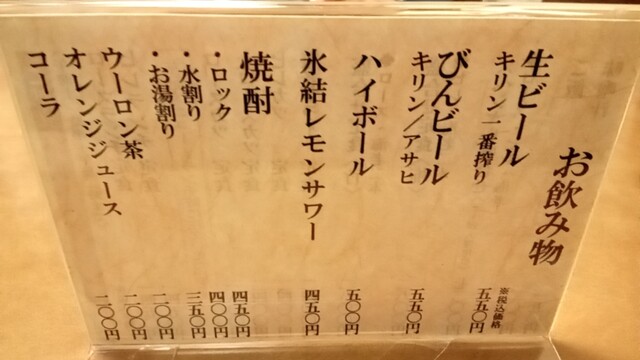 お飲み物
生ビール
キリン一番搾り 五五〇円
※税込価格
びんビール
キリン／アサヒ 五五〇円
ハイボール 五〇〇円
氷結レモンサワー 四五〇円
焼酎
・ロック 四五〇円
・水割り 四〇〇円
・お湯割り 三五〇円
ウーロン茶 二〇〇円
オレンジジュース 二〇〇円
コーラ 二〇〇円